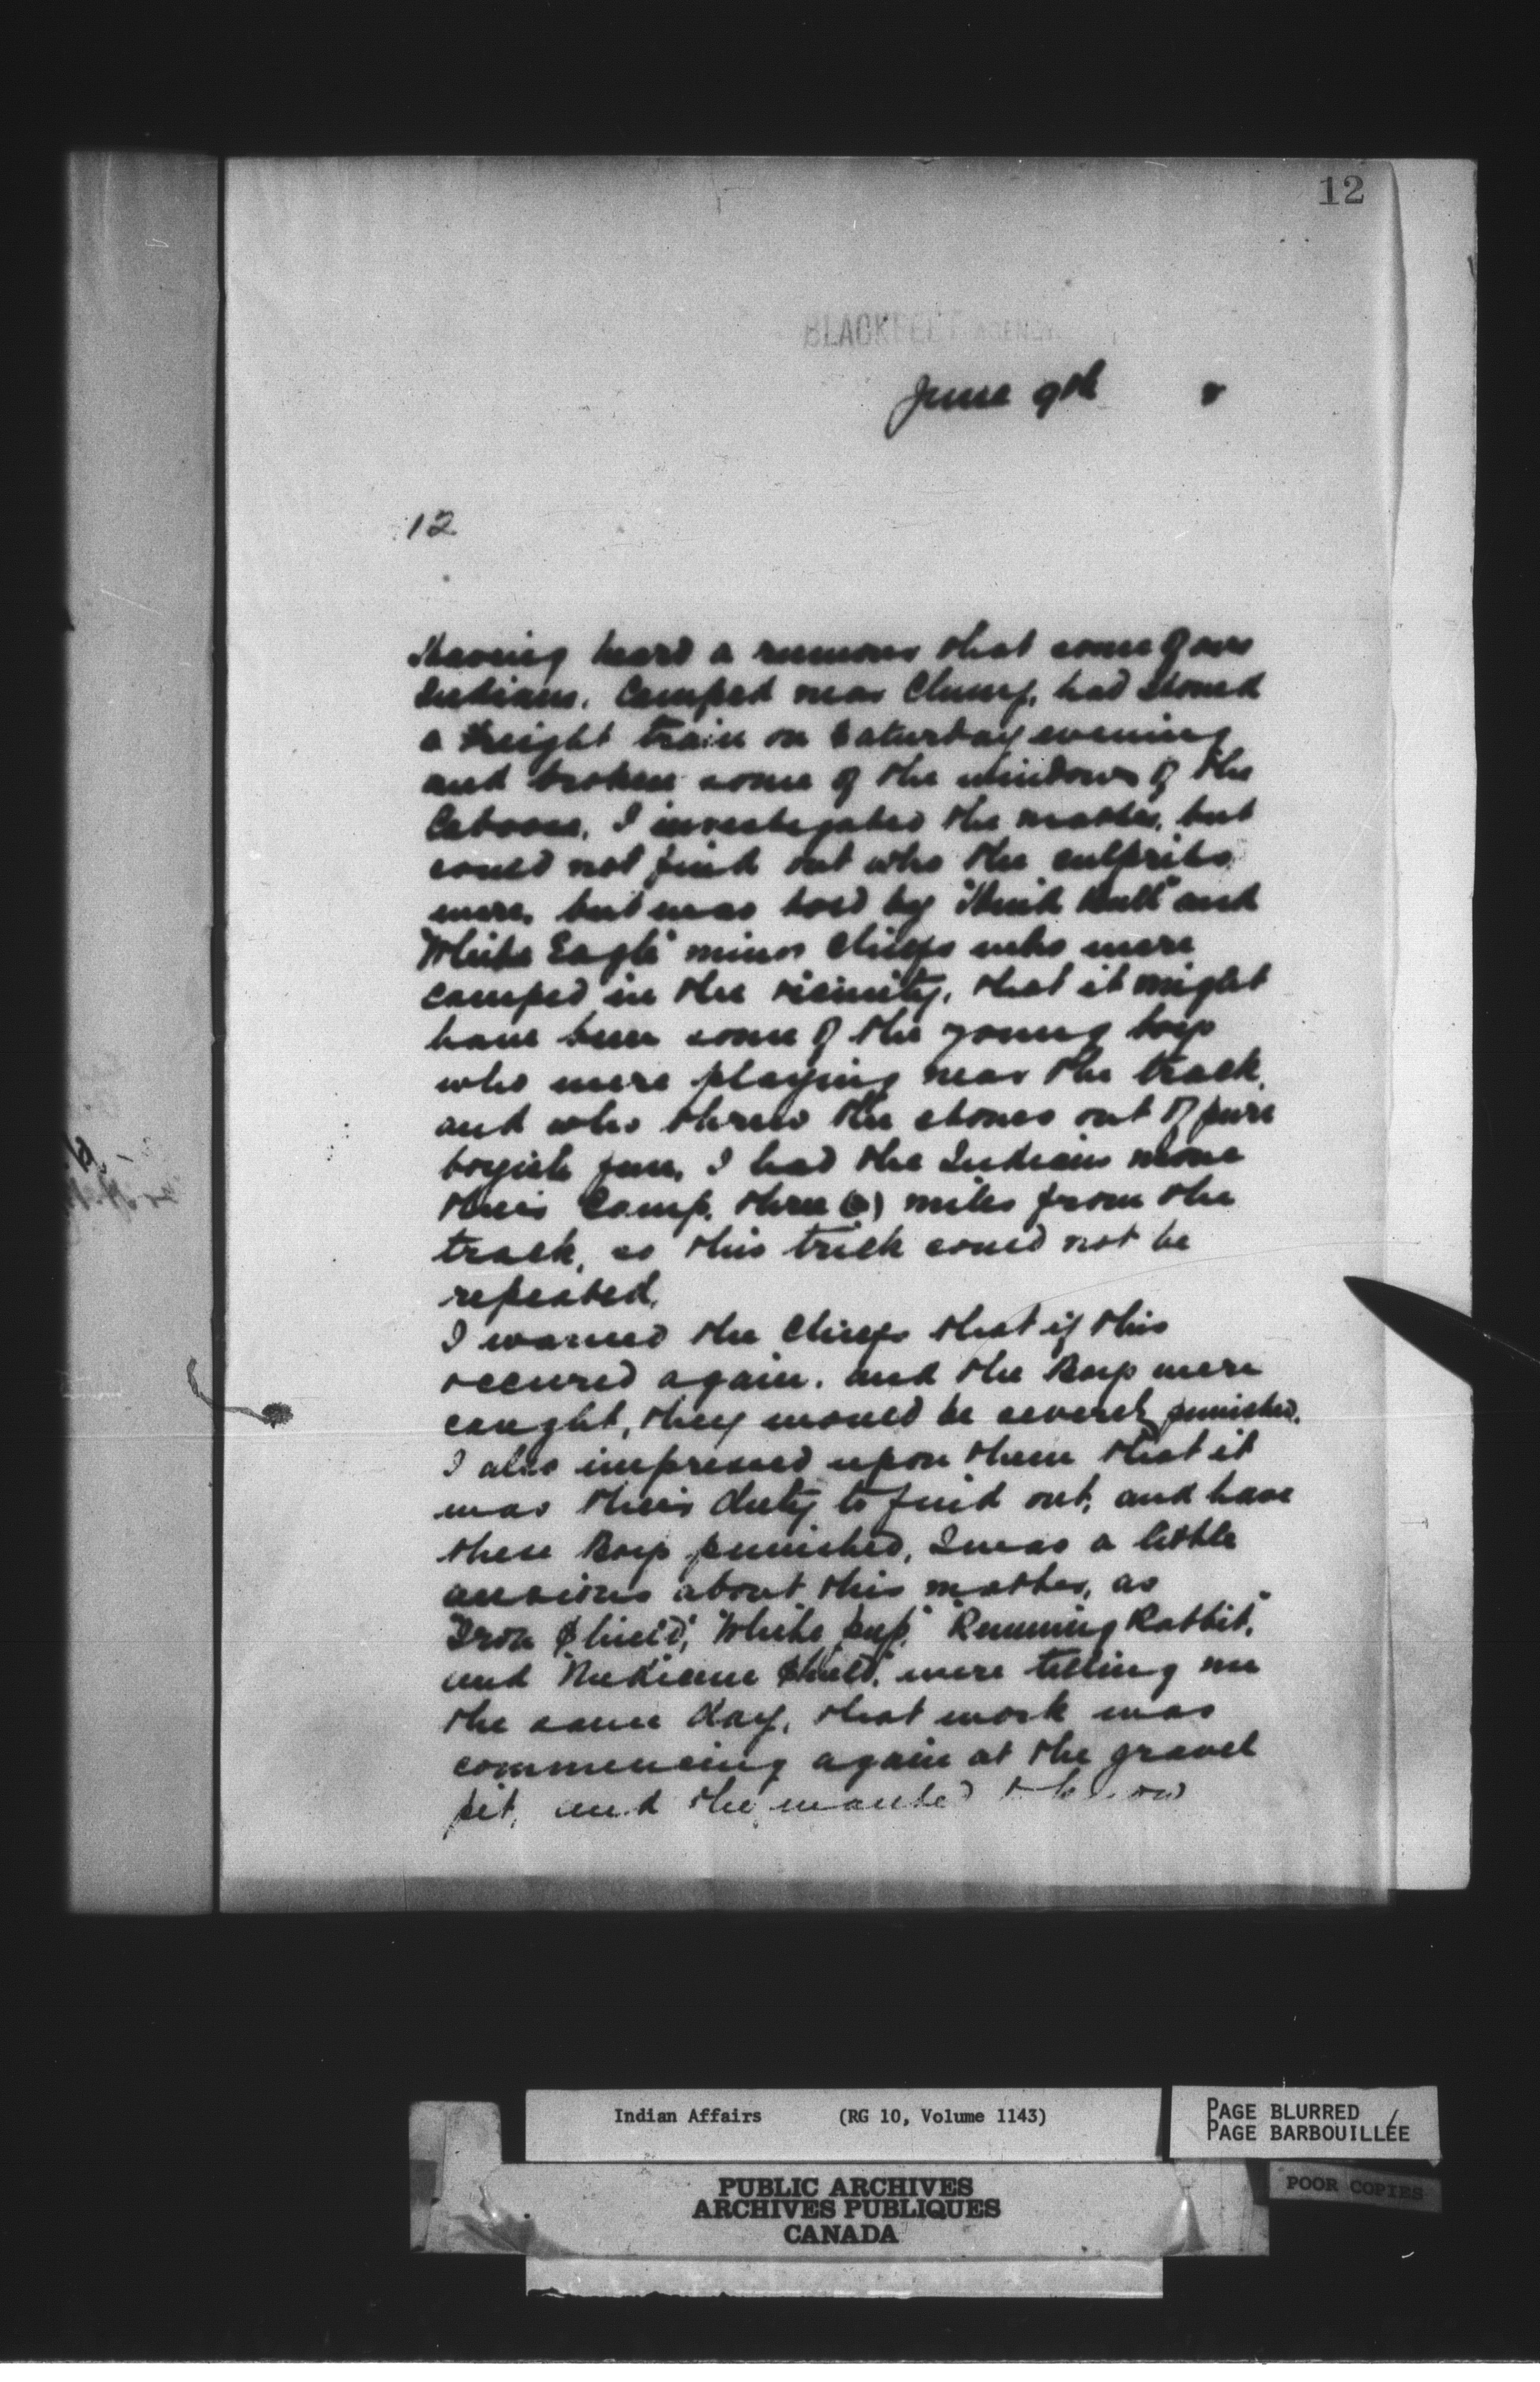 12
BLACKFEET AGENCY
June 9th 8
12
Having heard a rumour that some of our
Indians, Camped near Cluny, had stoned
a freight train on Saturday evening
and broken some of the windows of the
Caboose, I investigated the matter, but
could not find out who the culprits
were, but was told by "Bull" and
"White Eagle" minor Chiefs who were
camped in the vicinity, that it might
have been some of the young boys
who were playing near the track,
and who threw the stones out of pure
boyish fun, I had the Indians move
their Camp, three (3) miles from the
track, so this trick could not be
repeated.
I warned the Chiefs that if this
occured again, and the Boys were
caught, they would be severely punished.
I also impressed upon them that it
was their duty to find out, and have
these Boys punished, I was a little
anxious about this matter, as
"Iron Shield," "White pup," "Running Rabbit,"
and "Medicine Shield," were telling me
the same day, that work was
commencing again at the gravel
pit, and they wanted to know
Indian Affairs (RG 10, Volume 1143)
PAGE BLURRED
PAGE BARBOUILLÉE
POOR COPIES
PUBLIC ARCHIVES
ARCHIVES PUBLIQUES
CANADA